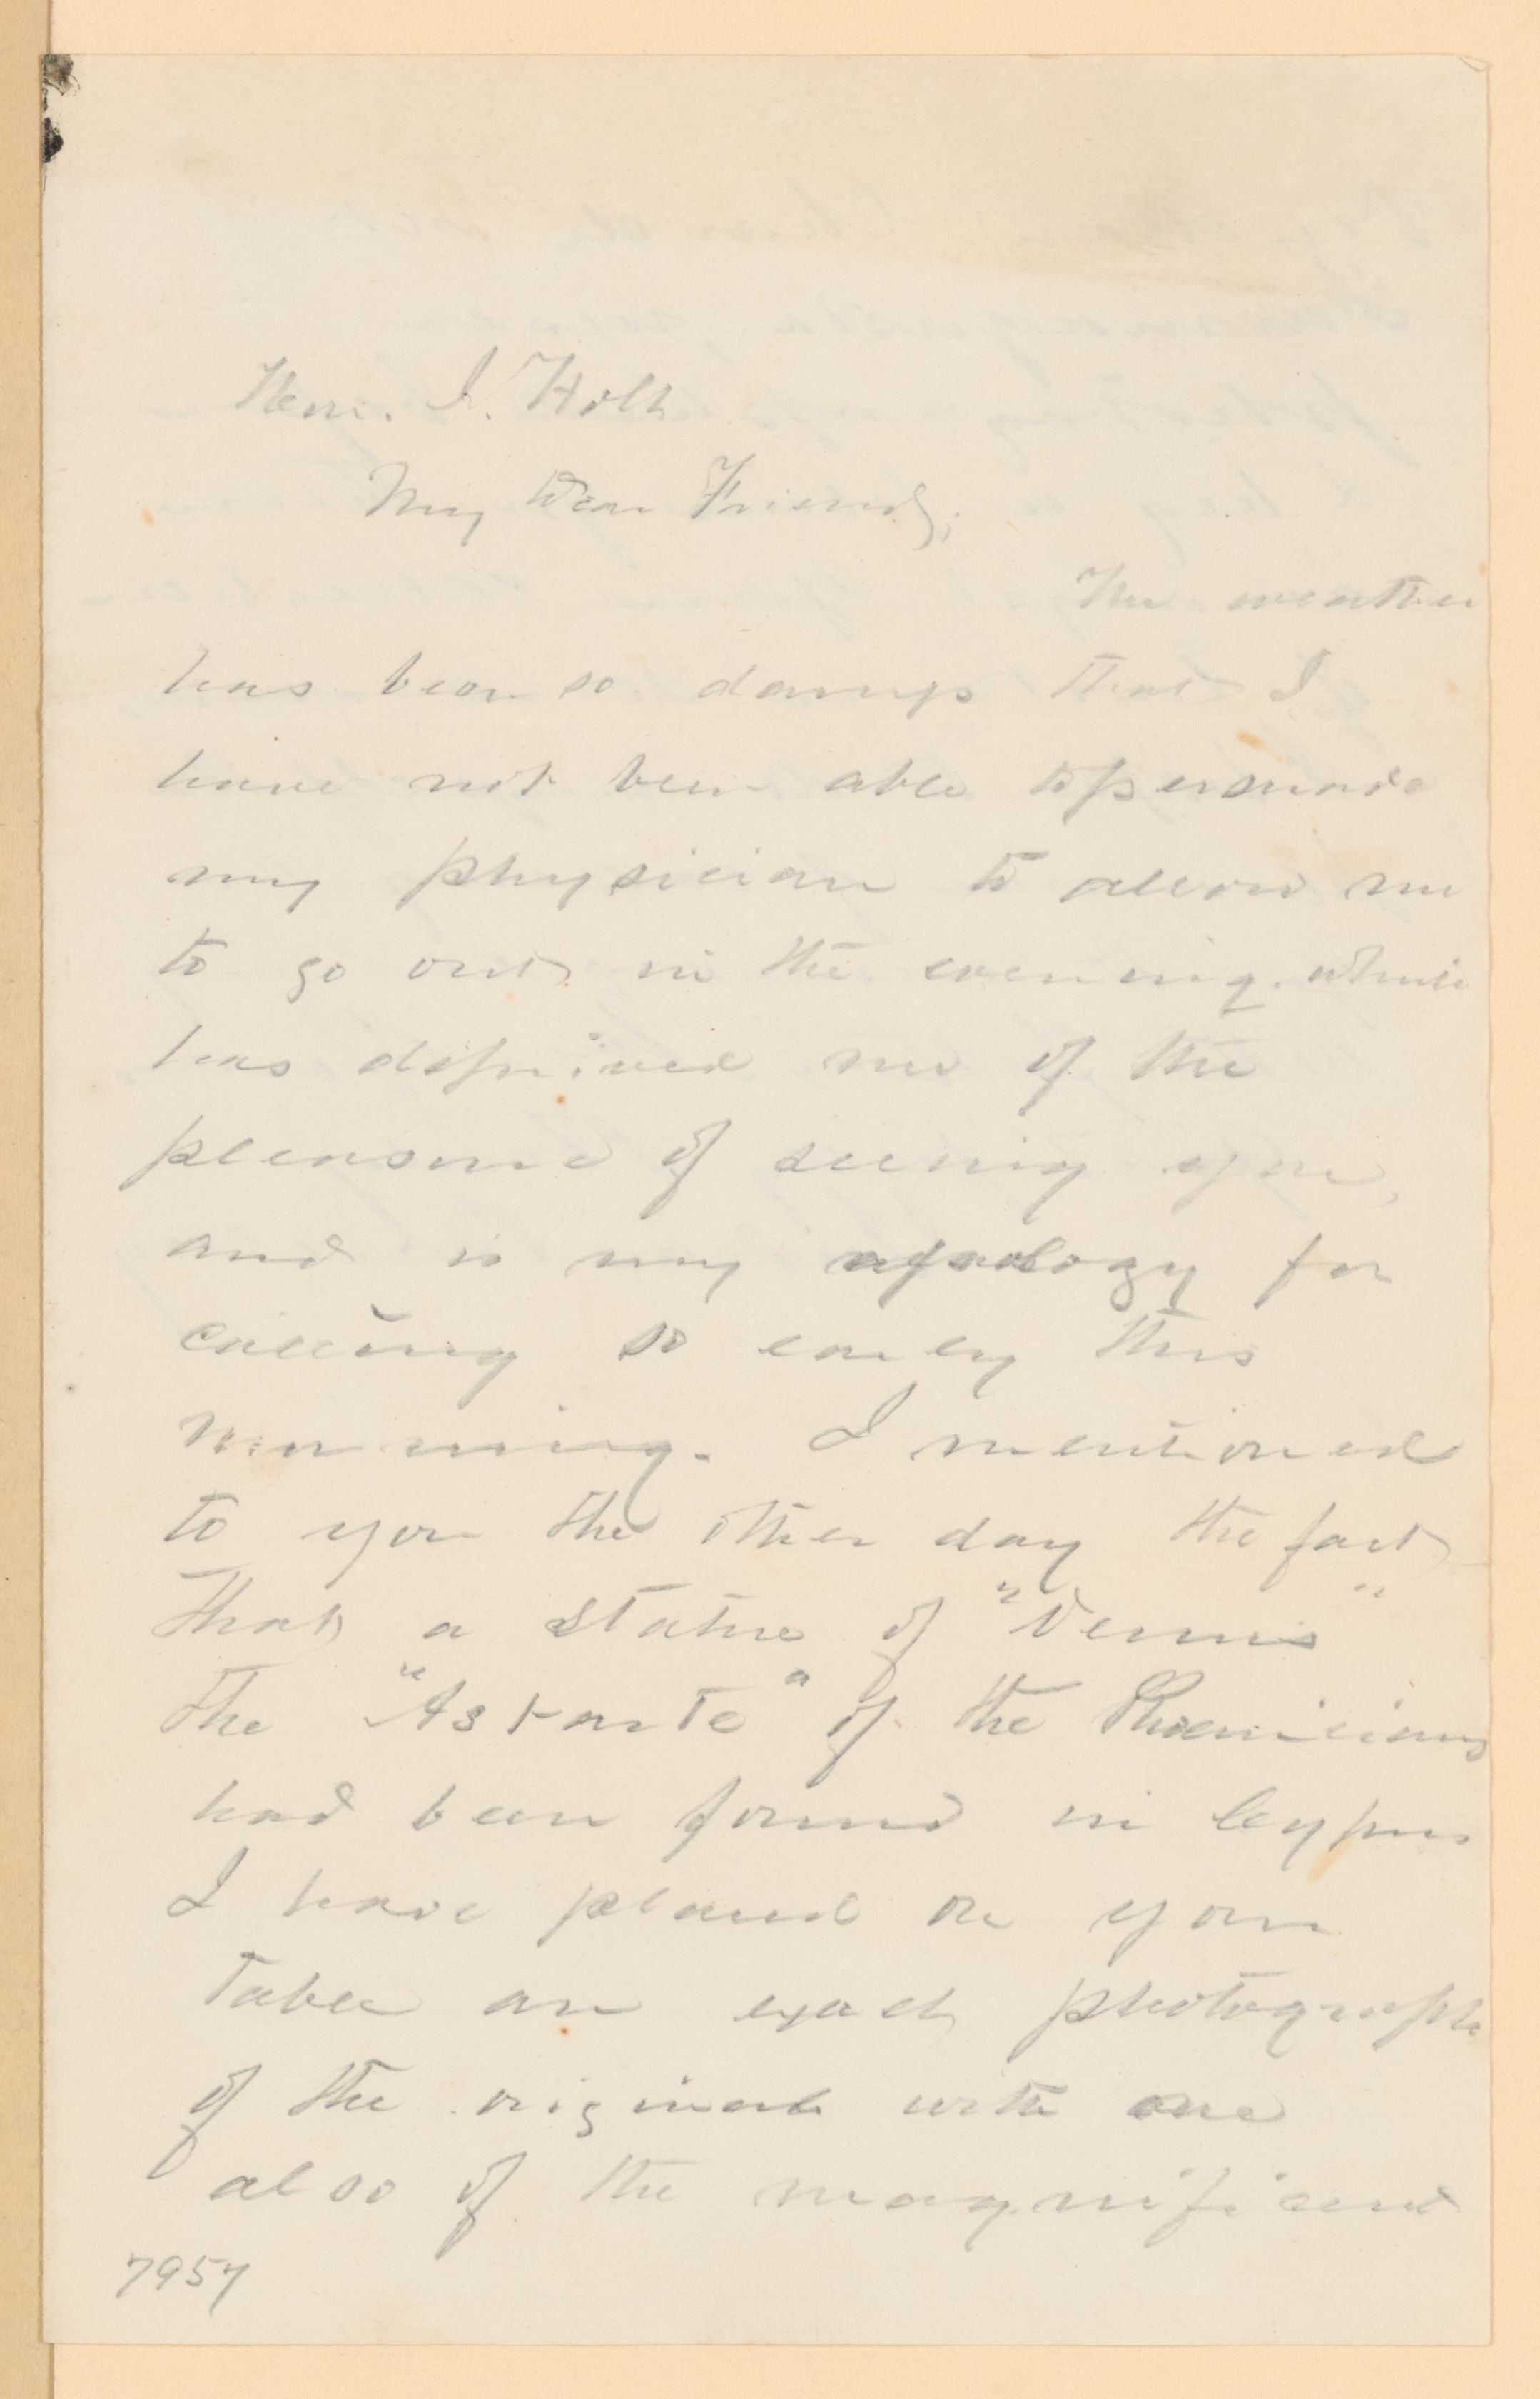 Hon. J. Holt
My Dear Friend;
The weather
has been so damp that I
have not been able to persuade
my physician to allow me
to go out in the evening. which
has deprived me of the
pleasure of seeing you,
and is my apology for
calling so early this
morning. I mentioned
to you the other day the fact
that a statue of "Venus"
the "Astarte" of the Phoenicians
had been found in Cyprus
I have placed on your
table an exact photograph
of the original with one
also of the magnificent
7957